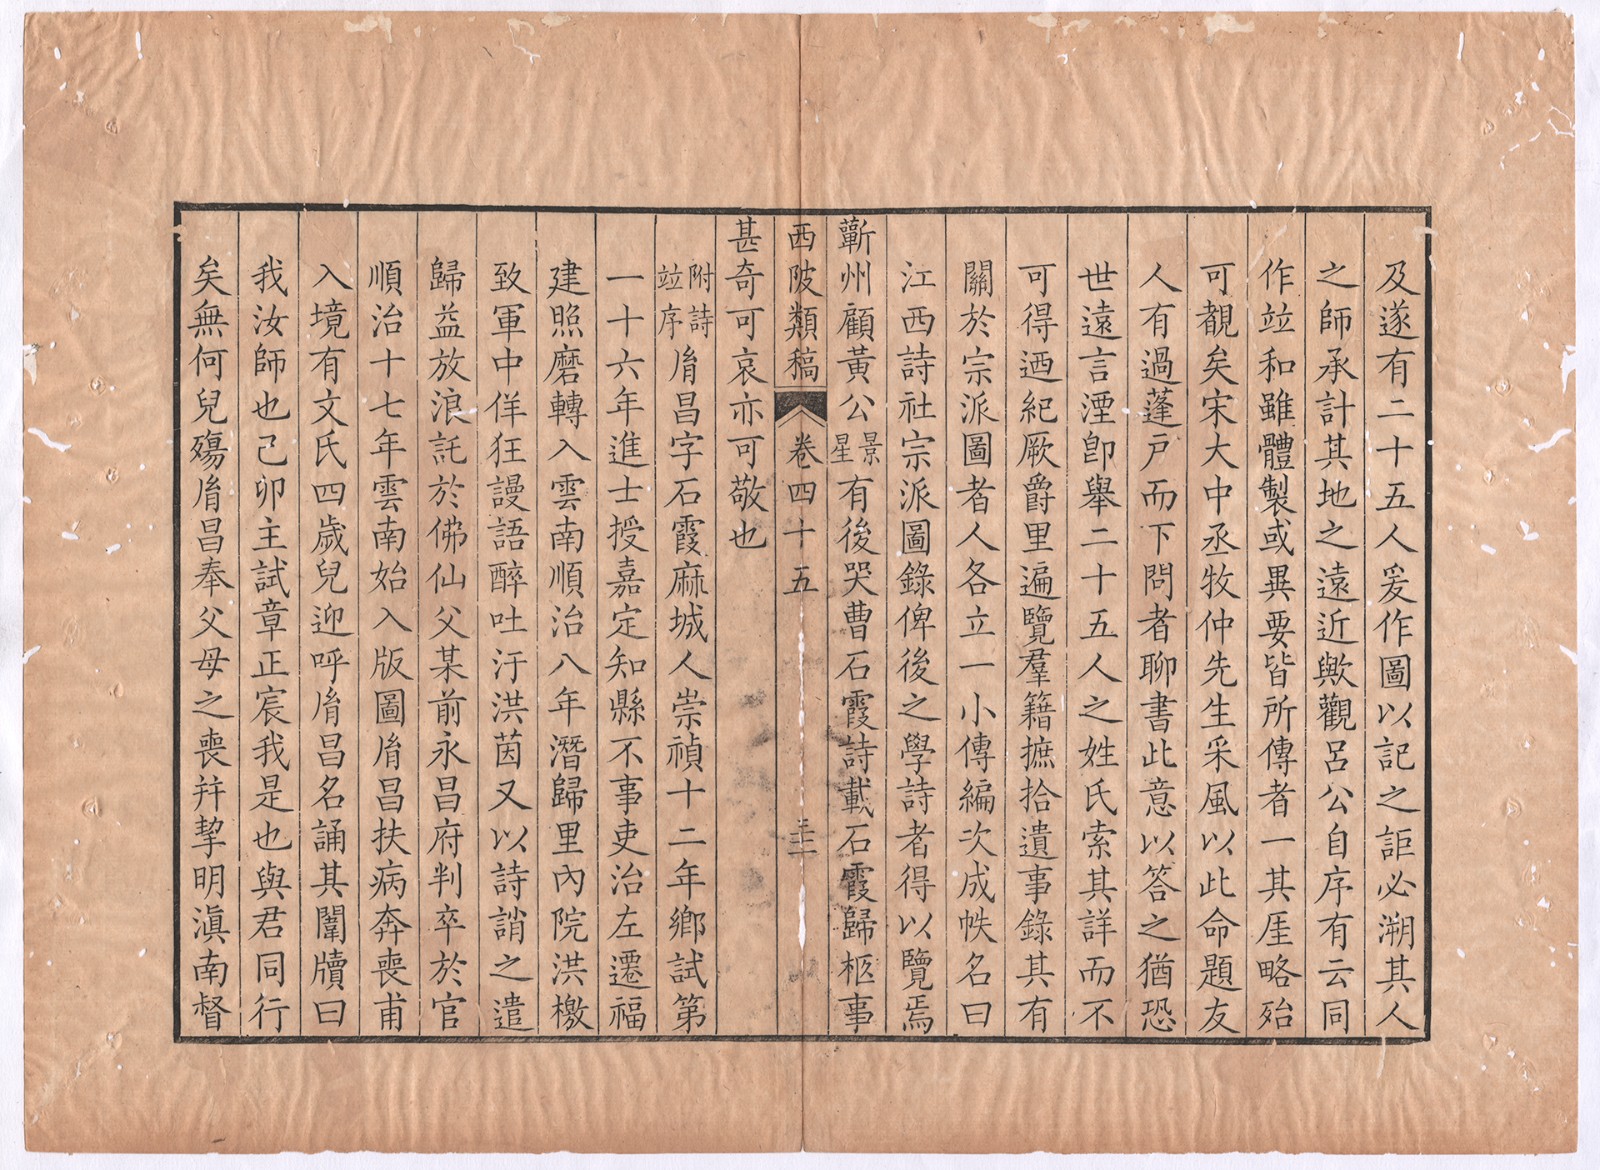 及遂有二十五人爰作圖以記之詎必溯其人
之師承計其地之遠近歟觀呂公自序有云同
作竝和雖體製或異要皆所傳者一其厓略殆
可覩矣宋大中丞牧仲先生采風以此命題友
人有過蓬戸而下問者聊書此意以答之猶恐
世遠言湮卽舉二十五人之姓氏索其詳而不
可得迺紀厥爵里遍覽羣籍摭拾遺事錄其有
關於宗派圖者人各立一小傳編次成帙名曰
江西詩社宗派圖錄俾後之學詩者得以覽焉
蘄州顧黃公景星有後哭曹石霞詩載石霞歸柩事
西陂類稿 卷四十五 三十二
甚奇可哀亦可敬也
附詩竝序 胤昌字石霞麻城人崇禎十二年鄉試第
一十六年進士授嘉定知縣不事吏治左遷福
建照磨轉入雲南順治八年潛歸里內院洪檄
致軍中佯狂謾語醉吐汙洪茵又以詩誚之遣
歸益放浪託於佛仙父某前永昌府判卒於官
順治十七年雲南始入版圖胤昌扶病奔喪甫
入境有文氏四歲兒迎呼胤昌名誦其闈牘曰
我汝師也己卯主試章正宸我是也與君同行
矣無何兒殤胤昌奉父母之喪幷挈明滇南督